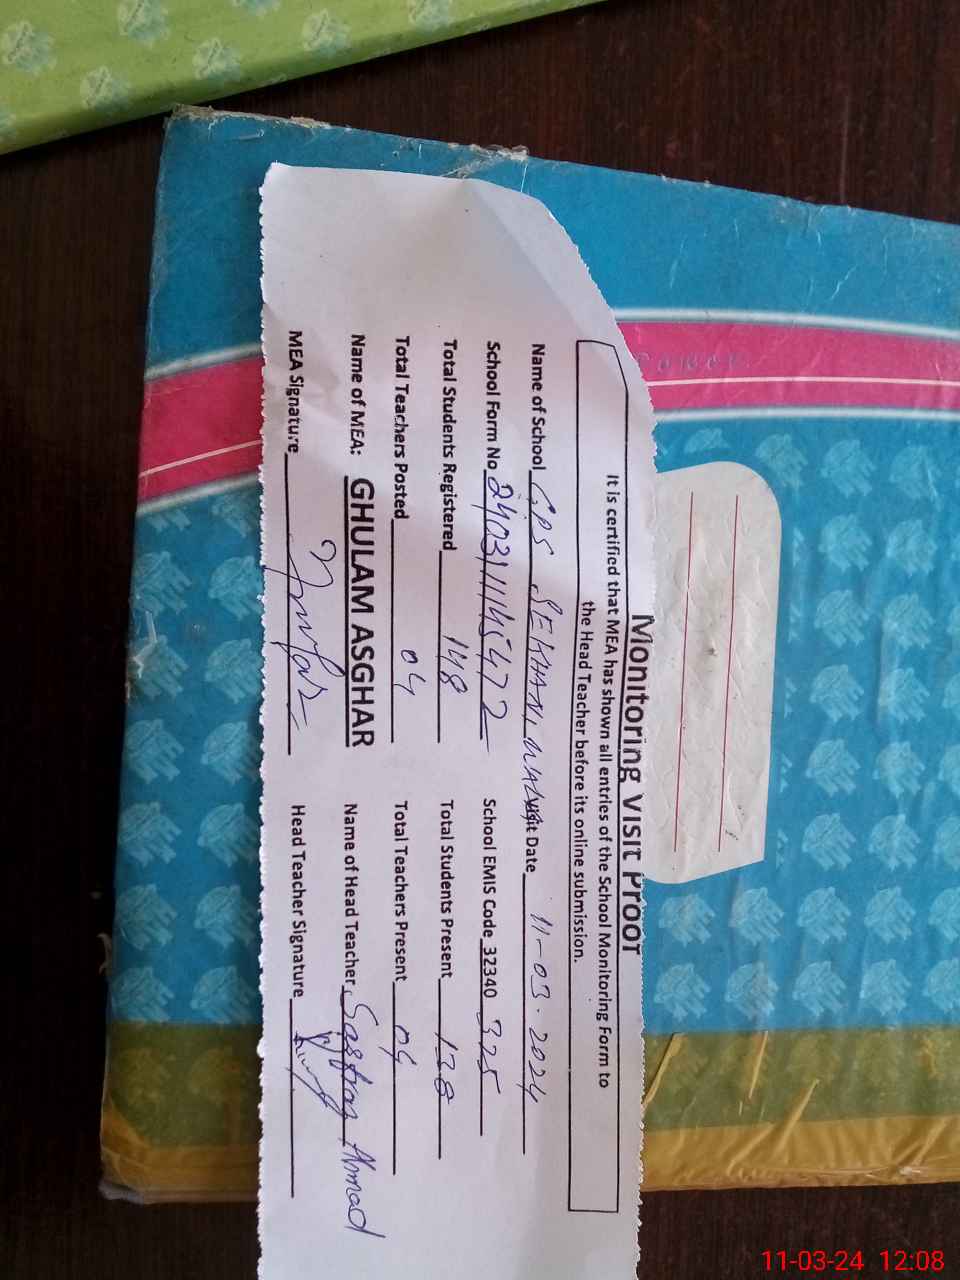 Monitoring Visit Proof
It is certified that MEA has shown all entries of the School Monitoring Form to
the Head Teacher before its online submission.
Name of School GPS SEKHANI Visit Date 11-03-2024
School Form No 24031114547 2 School EMIS Code 32340 325
Total Students Registered 148 Total Students Present 138
Total Teachers Posted 04 Total Teachers Present 04
Name of MEA: GHULAM ASGHAR Name of Head Teacher Ahmad
MEA Signature Head Teacher Signature
11-03-24 12:08